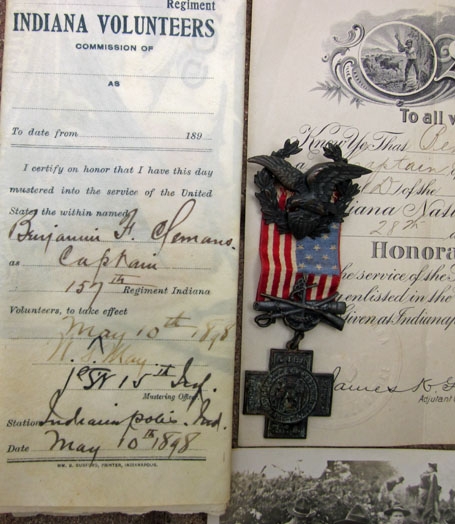 Regiment
INDIANA VOLUNTEERS
COMMISSION OF
AS
To date from 189
I certify on honor that I have this day
mustered into the service of the United
States the within named
Benjamin F. Clemans.
as Captain
157th Regiment Indiana
Volunteers, to take effect
May 10th 1898
May
1st 15th Inf.
Mustering Officer
Station Indianapolis. Ind.
Date May 10th 1898
WM. B. BURFORD, PRINTER, INDIANAPOLIS.
To all
Know Ye That
aptain
of the
iana Nat
28th
Honora
he service of the
enlisted in the
given at Indianap
James K.
Adjutant